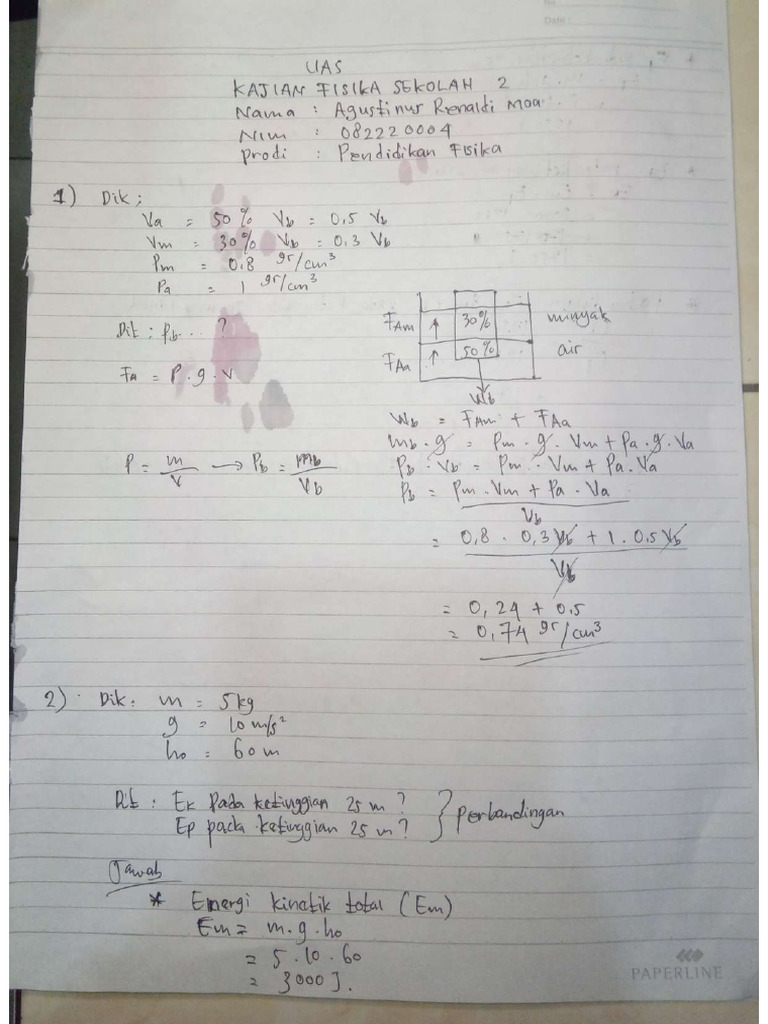 No
Date
UAS
KAJIAN FISIKA SEKOLAH 2
Nama : Agustinus Renaldi Moa
Nim : 082220004
Prodi : Pendidikan Fisika
1) Dik ;
Va = 50% Vb = 0,5 Vb
Vm = 30% Vb = 0,3 Vb
Pm = 0,8 gr/cm³
Pa = 1 gr/cm³
Dit ; Pb... ?
FA = P . g . V
FAm ↑ 30% minyak
FAa ↑ 50% air
Wb
Wb = FAm + FAa
mb . g = Pm . g . Vm + Pa . g . Va
P = m/V → Pb = mb/Vb
Pb . Vb = Pm . Vm + Pa . Va
Pb = Pm . Vm + Pa . Va
Vb
= 0,8 . 0,3 Vb + 1 . 0.5 Vb
Vb
= 0,24 + 0.5
= 0,74 gr/cm³
2) Dik : m = 5 kg
g = 10 m/s²
ho = 60 m
Dit : Ek Pada ketinggian 25 m ?
Ep pada ketinggian 25 m ? } Perbandingan
Jawab
* Energi kinetik total (Em)
Em = m . g . ho
= 5 . 10 . 60
= 3000 J.
PAPERLINE